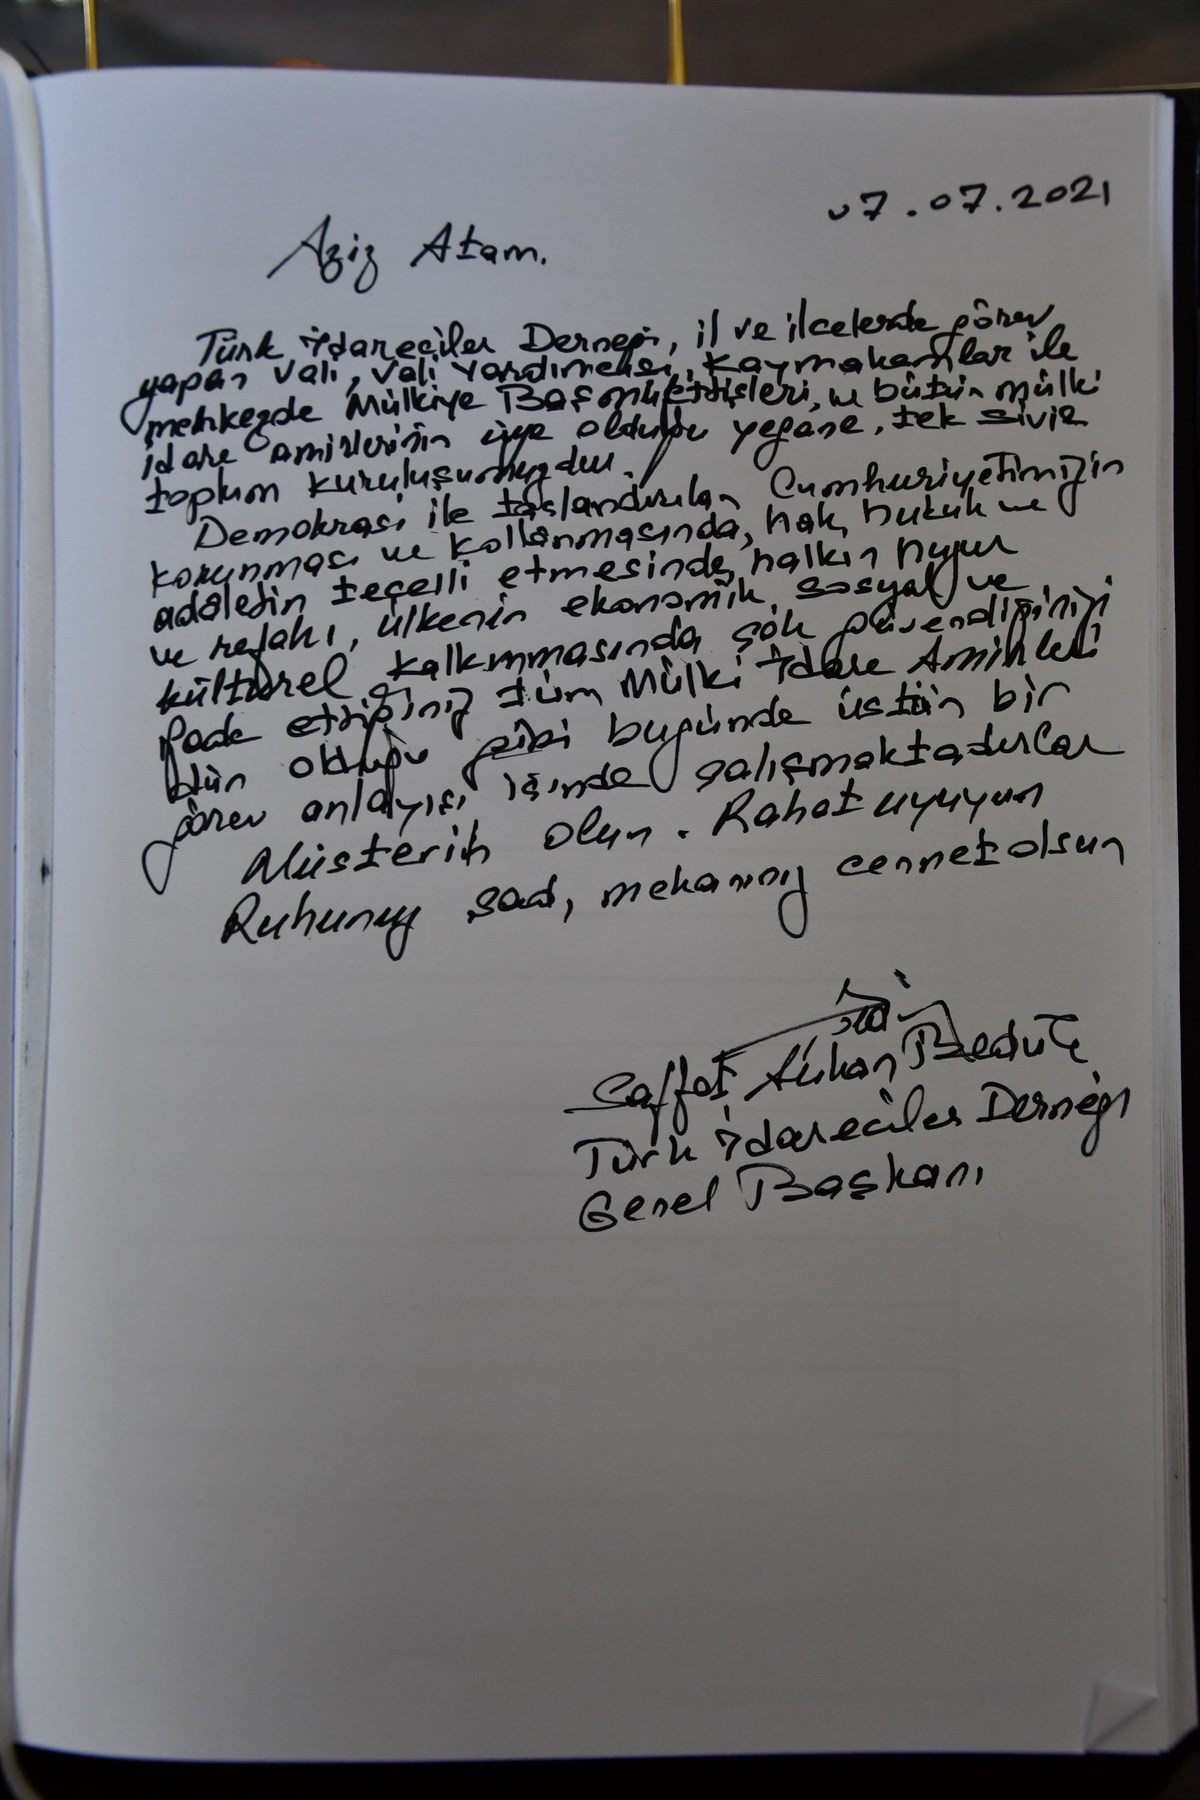 07.07.2021
Aziz Atam.
Türk İdareciler Derneği, il ve ilçelerde görev
yapan Vali, Vali Yardımcısı, Kaymakamlar ile
merkezde Mülkiye Başmüfettişleri, ve bütün mülki
idare amirlerinin üye olduğu yegane, tek sivil
toplum kuruluşumuzdur.
Demokrasi ile taçlandırılan Cumhuriyetimizin
korunması ve kollanmasında, hak, hukuk ve
adaletin tecelli etmesinde, halkın huzur
ve refahı, ülkenin ekonomik, sosyal ve
kültürel kalkınmasında çok güvendiğinizi
ifade ettiğiniz tüm Mülki İdare Amirleri
dün olduğu gibi bugünde üstün bir
görev anlayışı içinde çalışmaktadırlar
Müsterih olun. Rahat uyuyun
Ruhunuz şad, mekanınız cennet olsun
Saffet Arıkan Bedük
Türk İdareciler Derneği
Genel Başkanı